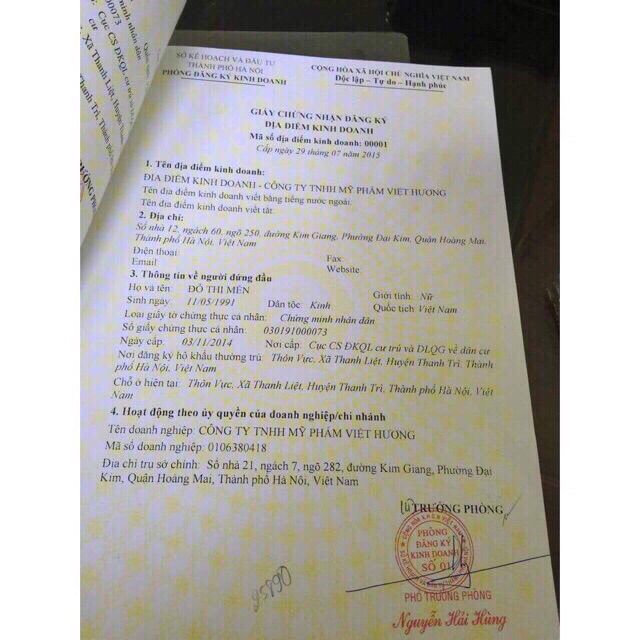 SỞ KẾ HOẠCH VÀ ĐẦU TƯ
THÀNH PHỐ HÀ NỘI
PHÒNG ĐĂNG KÝ KINH DOANH
CỘNG HÒA XÃ HỘI CHỦ NGHĨA VIỆT NAM
Độc lập – Tự do – Hạnh phúc
GIẤY CHỨNG NHẬN ĐĂNG KÝ
ĐỊA ĐIỂM KINH DOANH
Mã số địa điểm kinh doanh: 00001
Cấp ngày 29 tháng 07 năm 2015
1. Tên địa điểm kinh doanh:
ĐỊA ĐIỂM KINH DOANH - CÔNG TY TNHH MỸ PHẨM VIỆT HƯƠNG
Tên địa điểm kinh doanh viết bằng tiếng nước ngoài:
Tên địa điểm kinh doanh viết tắt:
2. Địa chỉ:
Số nhà 12, ngách 60, ngõ 250, đường Kim Giang, Phường Đại Kim, Quận Hoàng Mai,
Thành phố Hà Nội, Việt Nam
Điện thoại: Fax
Email Website
3. Thông tin về người đứng đầu
Họ và tên: ĐỖ THỊ MẾN Giới tính: Nữ
Sinh ngày: 11/05/1991 Dân tộc: Kinh Quốc tịch: Việt Nam
Loại giấy tờ chứng thực cá nhân: Chứng minh nhân dân
Số giấy chứng thực cá nhân: 030191000073
Ngày cấp: 03/11/2014 Nơi cấp: Cục CS ĐKQL cư trú và DLQG về dân cư
Nơi đăng ký hộ khẩu thường trú: Thôn Vực, Xã Thanh Liệt, Huyện Thanh Trì, Thành
phố Hà Nội, Việt Nam
Chỗ ở hiện tại: Thôn Vực, Xã Thanh Liệt, Huyện Thanh Trì, Thành phố Hà Nội, Việt
Nam
4. Hoạt động theo ủy quyền của doanh nghiệp/chi nhánh
Tên doanh nghiệp: CÔNG TY TNHH MỸ PHẨM VIỆT HƯƠNG
Mã số doanh nghiệp: 0106380418
Địa chỉ trụ sở chính: Số nhà 21, ngách 7, ngõ 282, đường Kim Giang, Phường Đại
Kim, Quận Hoàng Mai, Thành phố Hà Nội, Việt Nam
TRƯỞNG PHÒNG
PHÒNG
ĐĂNG KÝ
KINH DOANH
SỐ 01
PHÓ TRƯỞNG PHÒNG
Nguyễn Hải Hùng